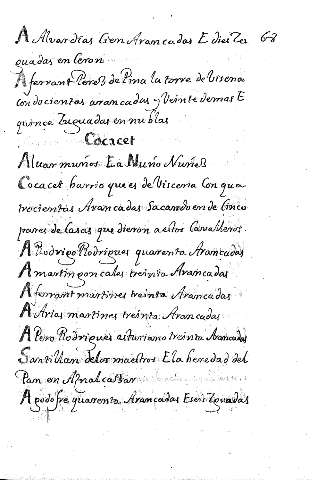 A Alvar dias Cien Arancadas E diez Yu 68
guadas en Ceron
A ferrant Perez de Pina la torre de Viscena
Con docientas arancadas y Veinte demas E
quince Yuguadas en nublas
Cocacet
Alvar muños E a Nuño Nuñez
Cocacet barrio que es de Viscena Con qua
trocientas Arancadas Sacando en de Cinco
pares de Casas que dieron a estos Cavalleros
A Rodrigo Rodrigues quarenta Arancadas
A martin goncales treinta Arancadas
A ferrant martines treinta Arancadas
A Arias martines treinta Arancadas
A Pero Rodrigues asturiano treinta Arancadas
Santillan de los maestros E la heredad del
Pan en Aznalcassar
A godofre quarenta Arancadas E seis Yguadas